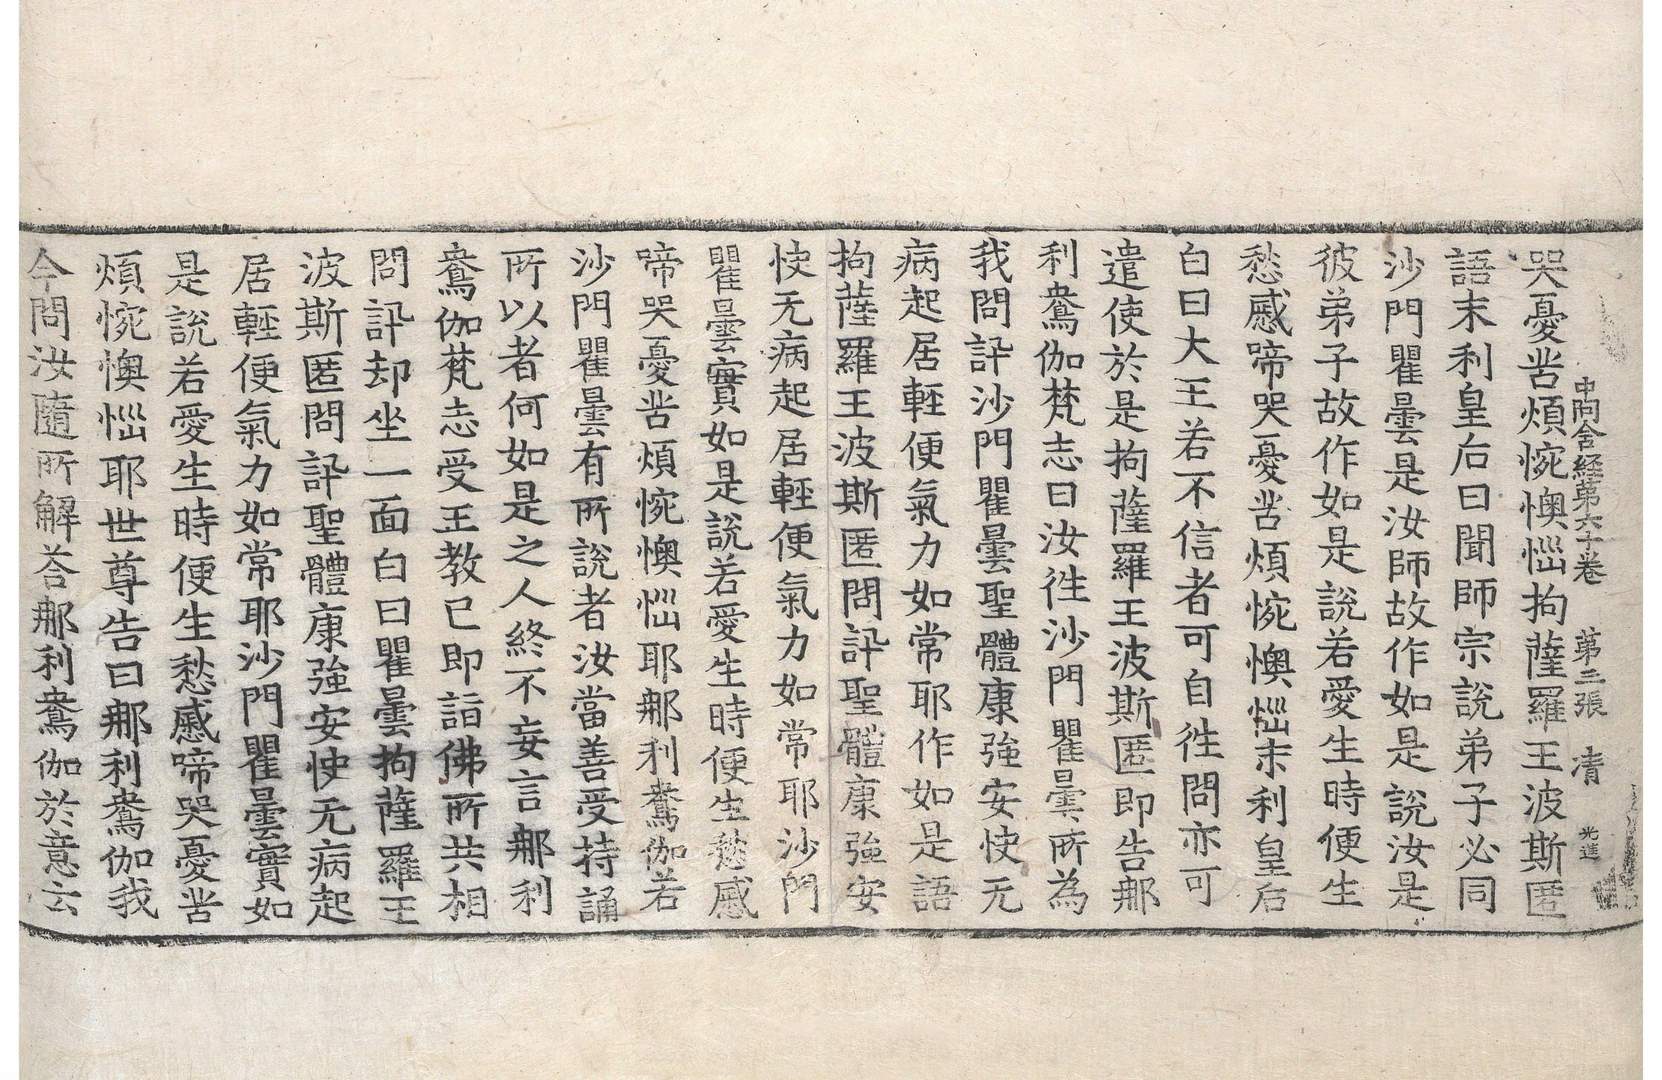 中阿含経第六十卷 第三張 清 光進
哭憂苦煩惋懊惱拘薩羅王波斯匿
語末利皇后曰聞師宗說弟子必同
沙門瞿曇是汝師故作如是說汝是
彼弟子故作如是說若愛生時便生
愁慼啼哭憂苦煩惋懊惱末利皇后
白曰大王若不信者可自徃問亦可
遣使於是拘薩羅王波斯匿即告那
利鴦伽梵志曰汝徃沙門瞿曇所為
我問訊沙門瞿曇聖體康強安快无
病起居輕便氣力如常耶作如是語
拘薩羅王波斯匿問訊聖體康強安
快无病起居輕便氣力如常耶沙門
瞿曇實如是說若愛生時便生愁慼
啼哭憂苦煩惋懊惱耶那利鴦伽若
沙門瞿曇有所說者汝當善受持誦
所以者何如是之人終不妄言那利
鴦伽梵志受王教已即詣佛所共相
問訊却坐一面白曰瞿曇拘薩羅王
波斯匿問訊聖體康強安快无病起
居輕便氣力如常耶沙門瞿曇實如
是說若愛生時便生愁慼啼哭憂苦
煩惋懊惱耶世尊告曰那利鴦伽我
今問汝隨所解荅那利鴦伽於意云